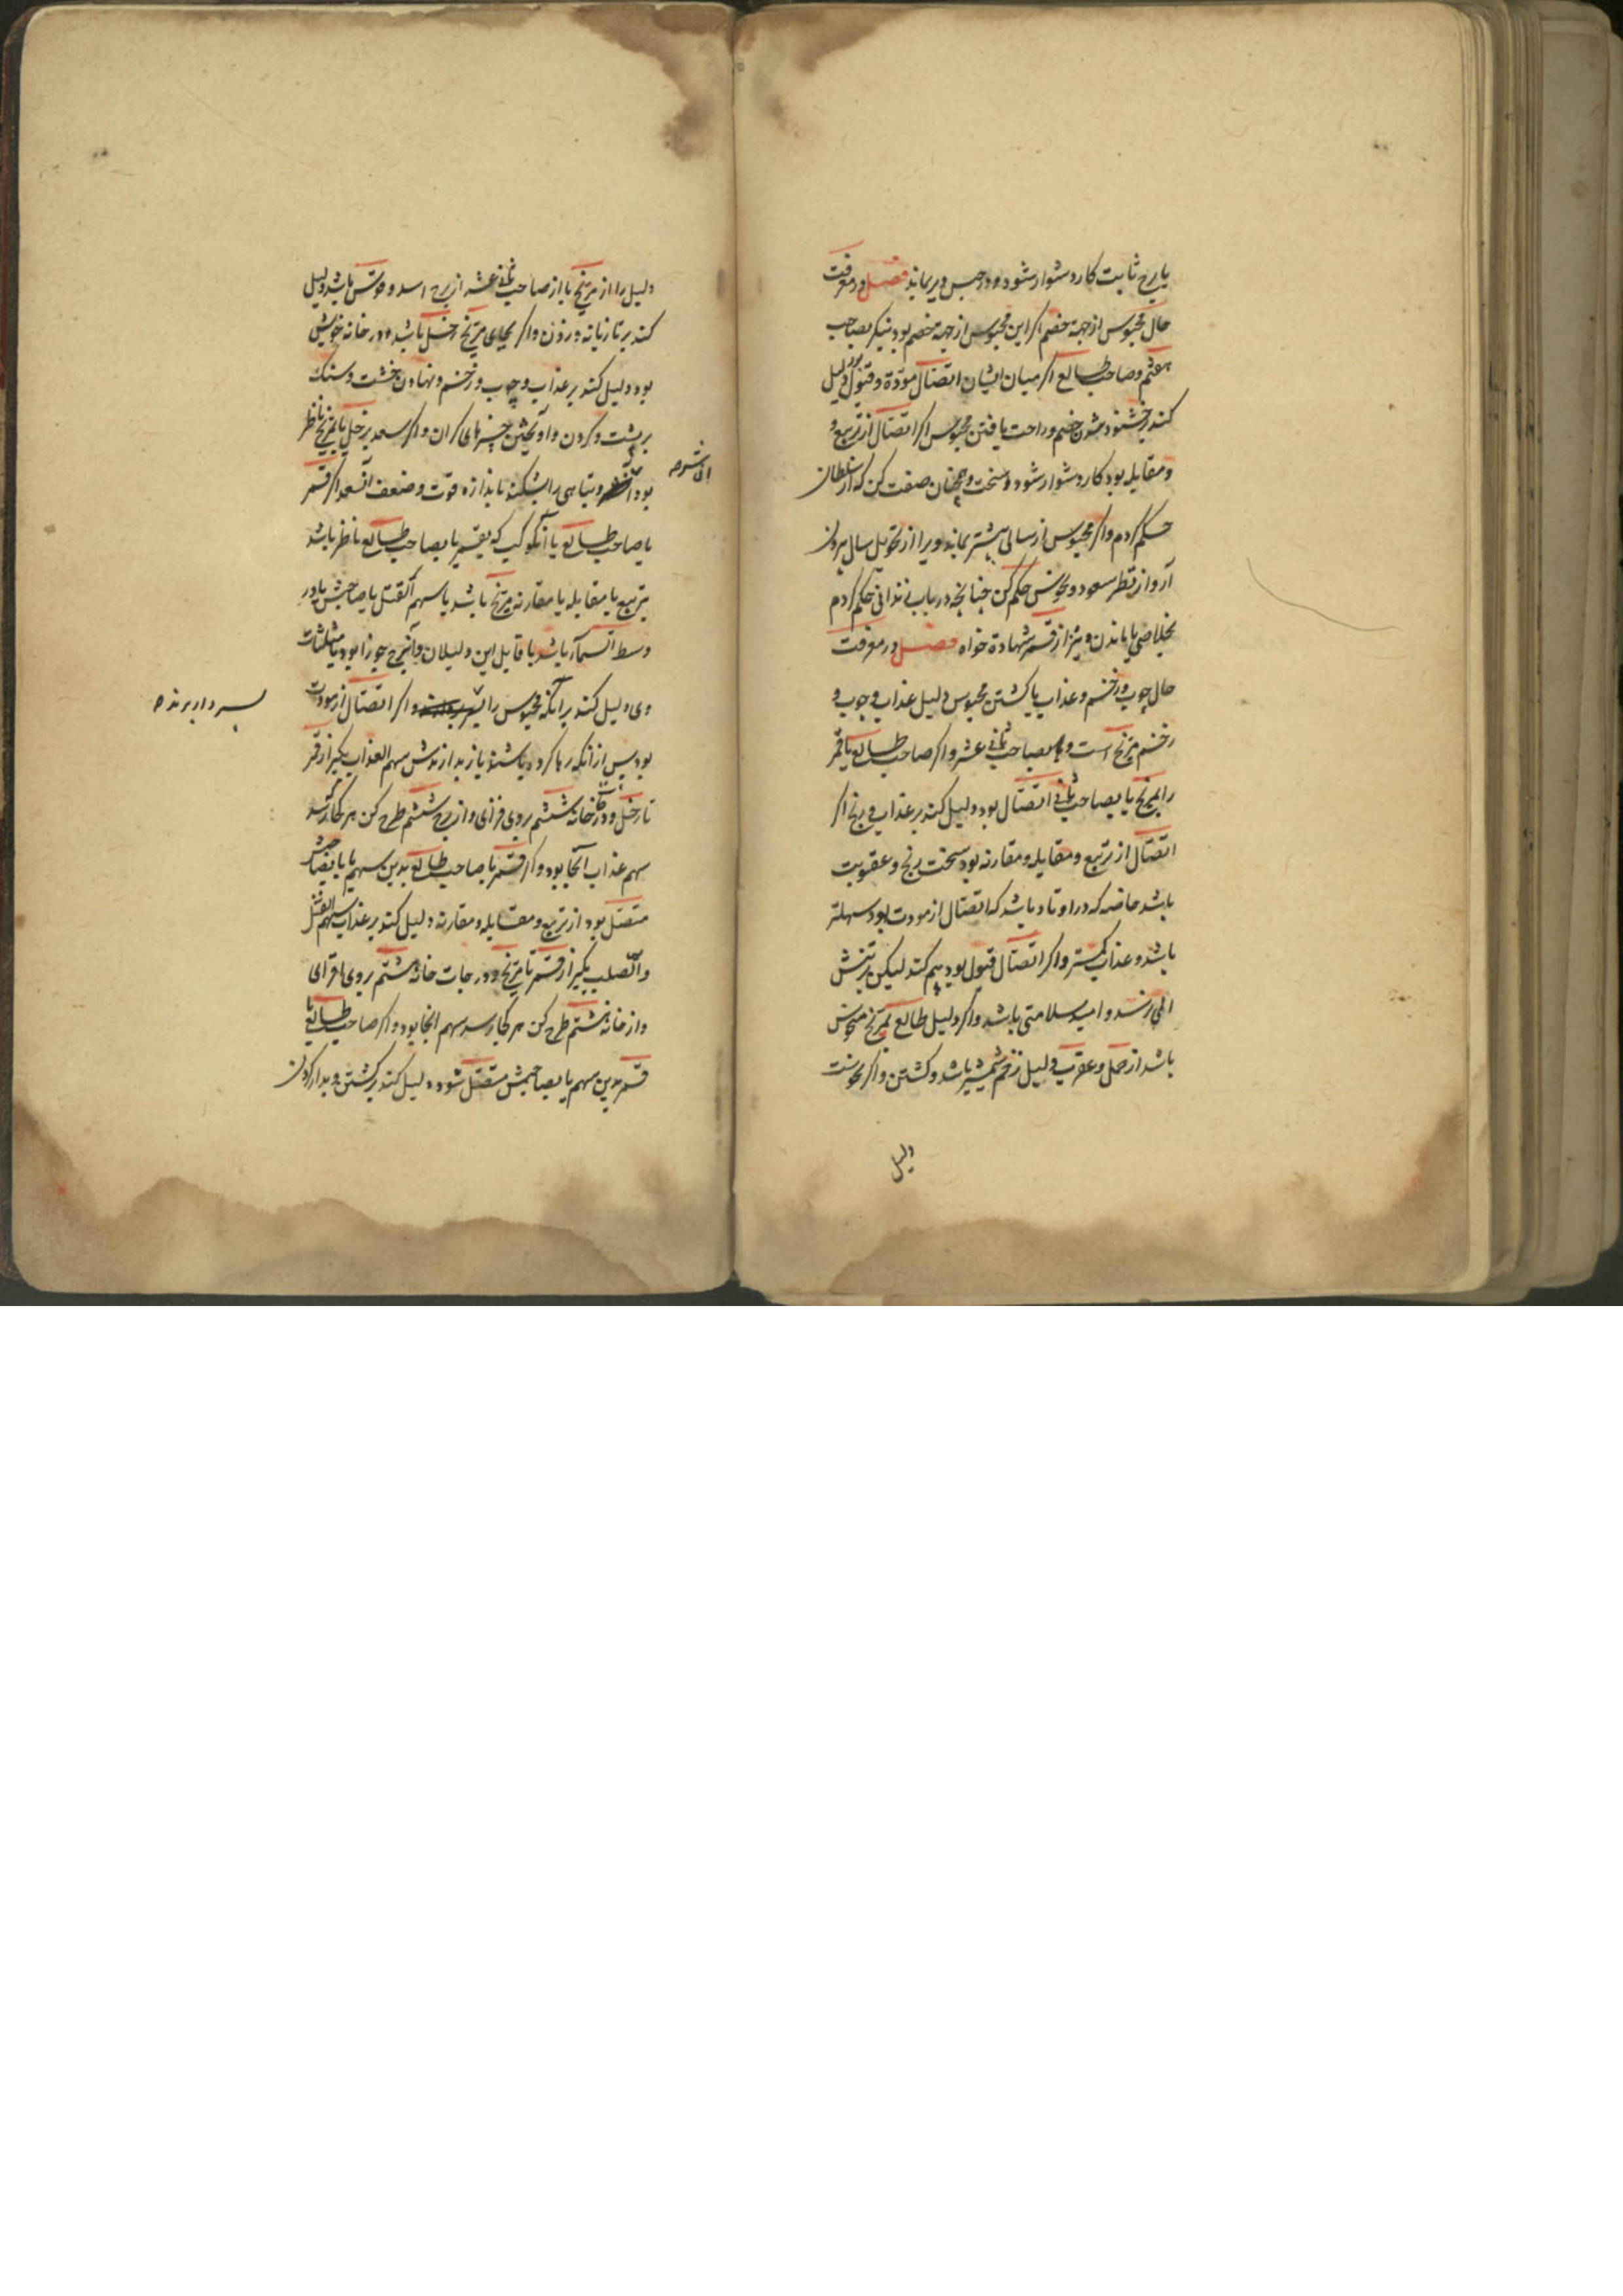 یا برج ثابت کار دشوار شود و در حبس دیر بماند فصل در معرفت
حال محبوس از جهة خصم اکر این محبوس از جهة خصم بود بنیکر بصاحب
هفتم و صاحب طالع اکر میان ایشان اتصال مودّة و قبول بود دلیل
کند بخشنود شدن خصم و راحت یافتن محبوس اکر اتصال از تربیع و
و مقابله بود کار دشوار شود و سخت و همچنان صفت کن که از سلطان
حکم کردم و اکر محبوس از سالی بیشتر بماند ویرا از تحویل سال بیرون
آر و از نظر سعود و نحوس حکم کن چنانچه در باب زندانی حکم کردم
بخلاصی یا ماندن و نیز از قمر شهادة خواه فصل در معرفت
حال چوب و زخم و عذاب یا کشتن محبوس دلیل عذاب و چوب و
زخم مریخ است و بصاحب ثانی عشر و اکر صاحب طالع یا قمر
را بمریخ یا بصاحب ثانی اتصال بود دلیل کند بر عذاب و رنج اکر
اتصال از تربیع و مقابله و مقارنه بود سخت رنج و عقوبت
باشد خاصه که در اوتاد باشد که اتصال از مودت بود سهلتر
باشد و عذاب کمتر و اکر اتصال قبول بود بیم کند لیکن بر تنش
المی نرسد و امید سلامتی باشد و اکر دلیل طالع بمریخ منحوس
باشد از حمل و عقرب دلیل زخم شمشیر باشد و کشتن و اکر نحوست
دلیل
دلیل را از مریخ یا از صاحب ثانی عشر از برج اسد و قوس باشد دلیل
کند بر تازیانه و زدن و اکر بجای مریخ زحل باشد و در خانه خویش
بود دلیل کند بر عذاب و چوب و زخم و نهادن خشت و سنک
بر پشت و کردن و اویختن چیزهای کران و اکر سعد بزحل یا بمریخ ناظر
بود آن شر
و تباهی را بشکند باندازه قوت و ضعف آن سعد اکر قمر
یا صاحب طالع یا آن کوکب که بقمر یا بصاحب طالع ناظر باشد
بتربیع یا مقابله یا مقارنه مریخ باشد یا سهم القتل یا صاحبش یا در
وسط السمآء باشد یا قابل این دلیلان و آن برج جوزا بود یا مثلثات
وی دلیل کند بر آنکه محبوس را
بسر دار برند
و اکر اتصال از مودت
بود پس از آنکه رها کرده باشند باز بدار زنندش سهم العذاب بکیر از قمر
تا زحل و درجات خانه ششم بروی فزای و از برج ششم طرح کن هر کجا که رسد
سهم عذاب آنجا بود و اکر قمر یا صاحب طالع بدین سهم یا بصاحبش
متصل بود از تربیع و مقابله و مقارنه دلیل کند بر عذاب سهم القتل
و الصلب بکیر از قمر تا مریخ و درجات خانه هشتم بروی افزای
و از خانه هشتم طرح کن هر کجا رسد سهم انجا بود و اکر صاحب طالع یا
قمر بدین سهم یا بصاحبش متصل شود دلیل کند بر کشتن و بدار کردن